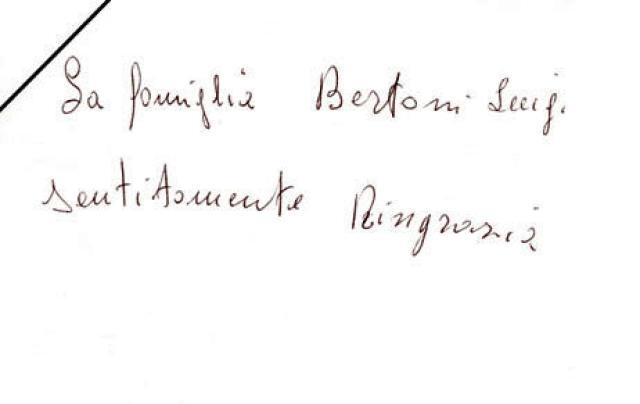 La famiglia Bertoni Luigi
sentitamente Ringrazia